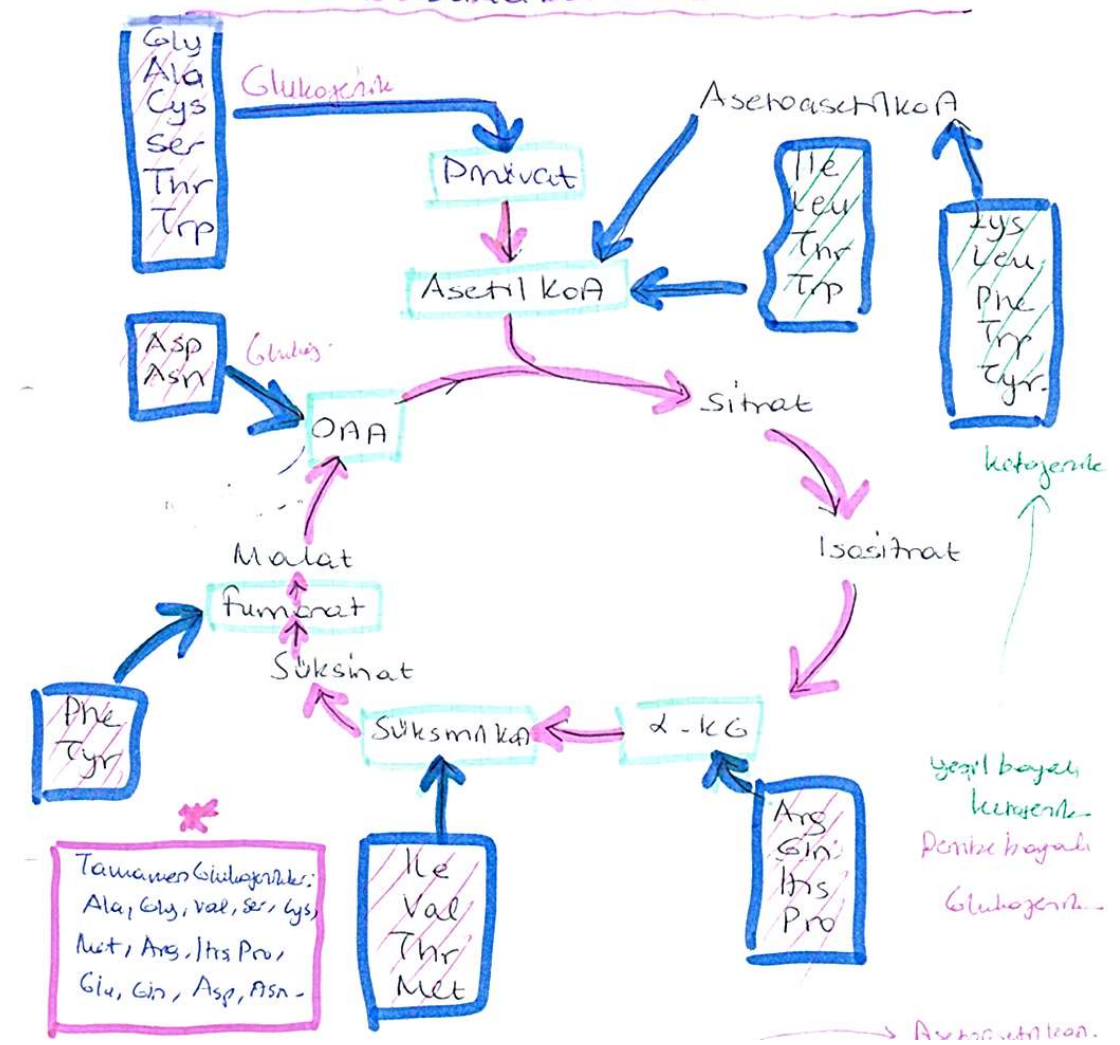 Gly
Ala
Cys
Ser
Thr
Trp
Glukojenik
Pirüvat
Asetoasetil koA
Ile
Leu
Thr
Trp
Lys
Leu
Phe
Trp
Tyr.
Asetil koA
Asp
Asn
OAA
Sitrat
ketojenik
Isositrat
Malat
fumarat
Süksinat
Phe
Tyr
Süksinil koA
α-KG
Arg
Gln
His
Pro
yeşil boyalı
ketojenik
Pembe boyalı
Glukojenik
Tamamen Glukojenikler:
Ala, Gly, Val, Ser, Cys,
Met, Arg, His Pro,
Glu, Gln, Asp, Asn.
Ile
Val
Thr
Met
Asetoasetil koA.